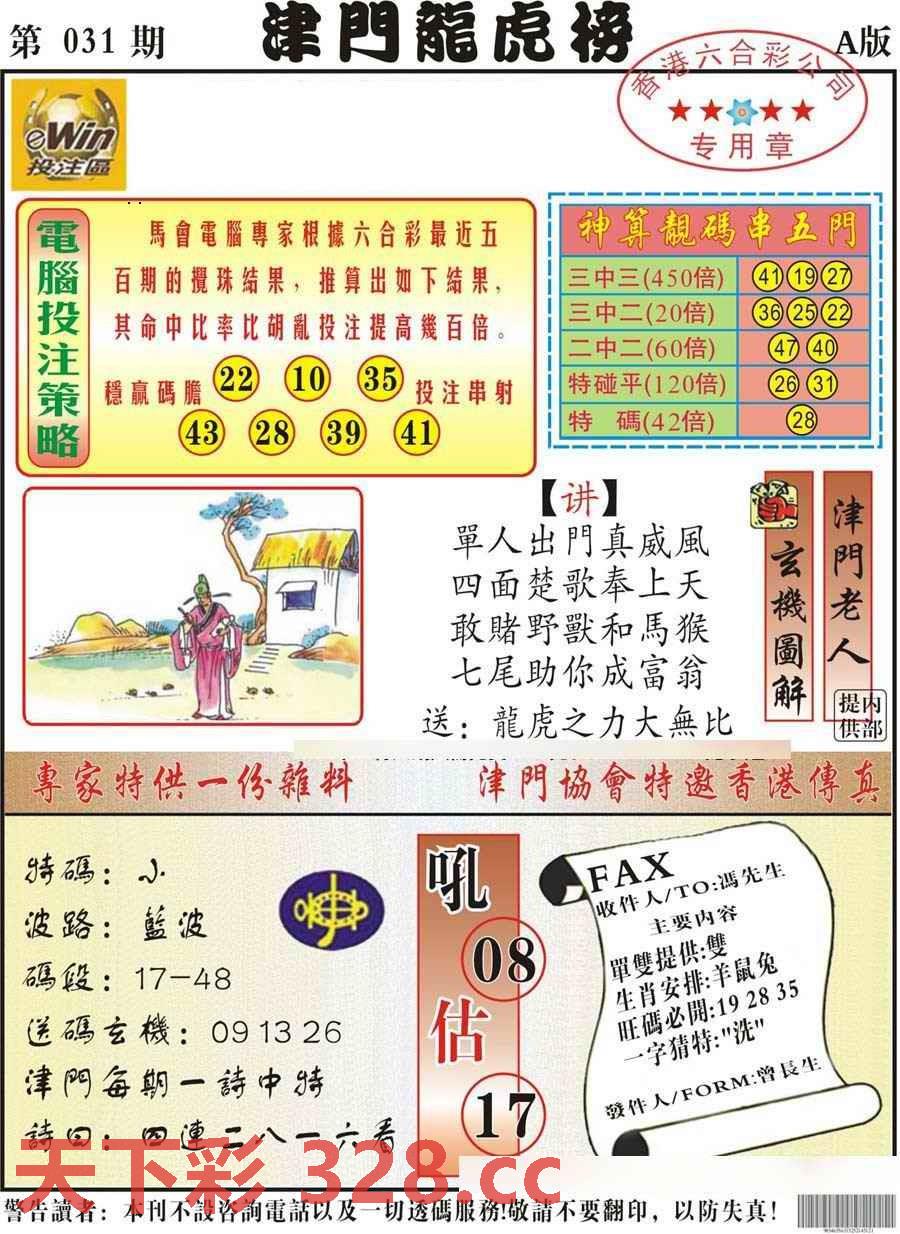 第 031 期
津門龍虎榜
A版
香港六合彩公司
专用章
eWin
投注區
電腦投注策略
馬會電腦專家根據六合彩最近五
百期的攪珠結果，推算出如下結果，
其命中比率比胡亂投注提高幾百倍。
穩贏碼膽 22 10 35 投注串射
43 28 39 41
神算靚碼串五門
三中三(450倍) 41 19 27
三中二(20倍) 36 25 22
二中二(60倍) 47 40
特碰平(120倍) 26 31
特 碼(42倍) 28
【讲】
單人出門真威風
四面楚歌奉上天
敢賭野獸和馬猴
七尾助你成富翁
送：龍虎之力大無比
玄機圖解
津門老人
内部提供
專家特供一份雜料
津門協會特邀香港傳真
特碼：小
波路：藍波
碼段：17-48
送碼玄機：09 13 26
津門每期一詩中特
詩曰：四連二八一六看
吼
08
估
17
FAX
收件人/TO:馮先生
主要内容
單雙提供:雙
生肖安排:羊鼠兔
旺碼必開:19 28 35
一字猜特:"洗"
發件人/FORM:曾長生
天下彩 328.cc
警告讀者：本刊不設咨詢電話以及一切透碼服務!敬請不要翻印，以防失真！